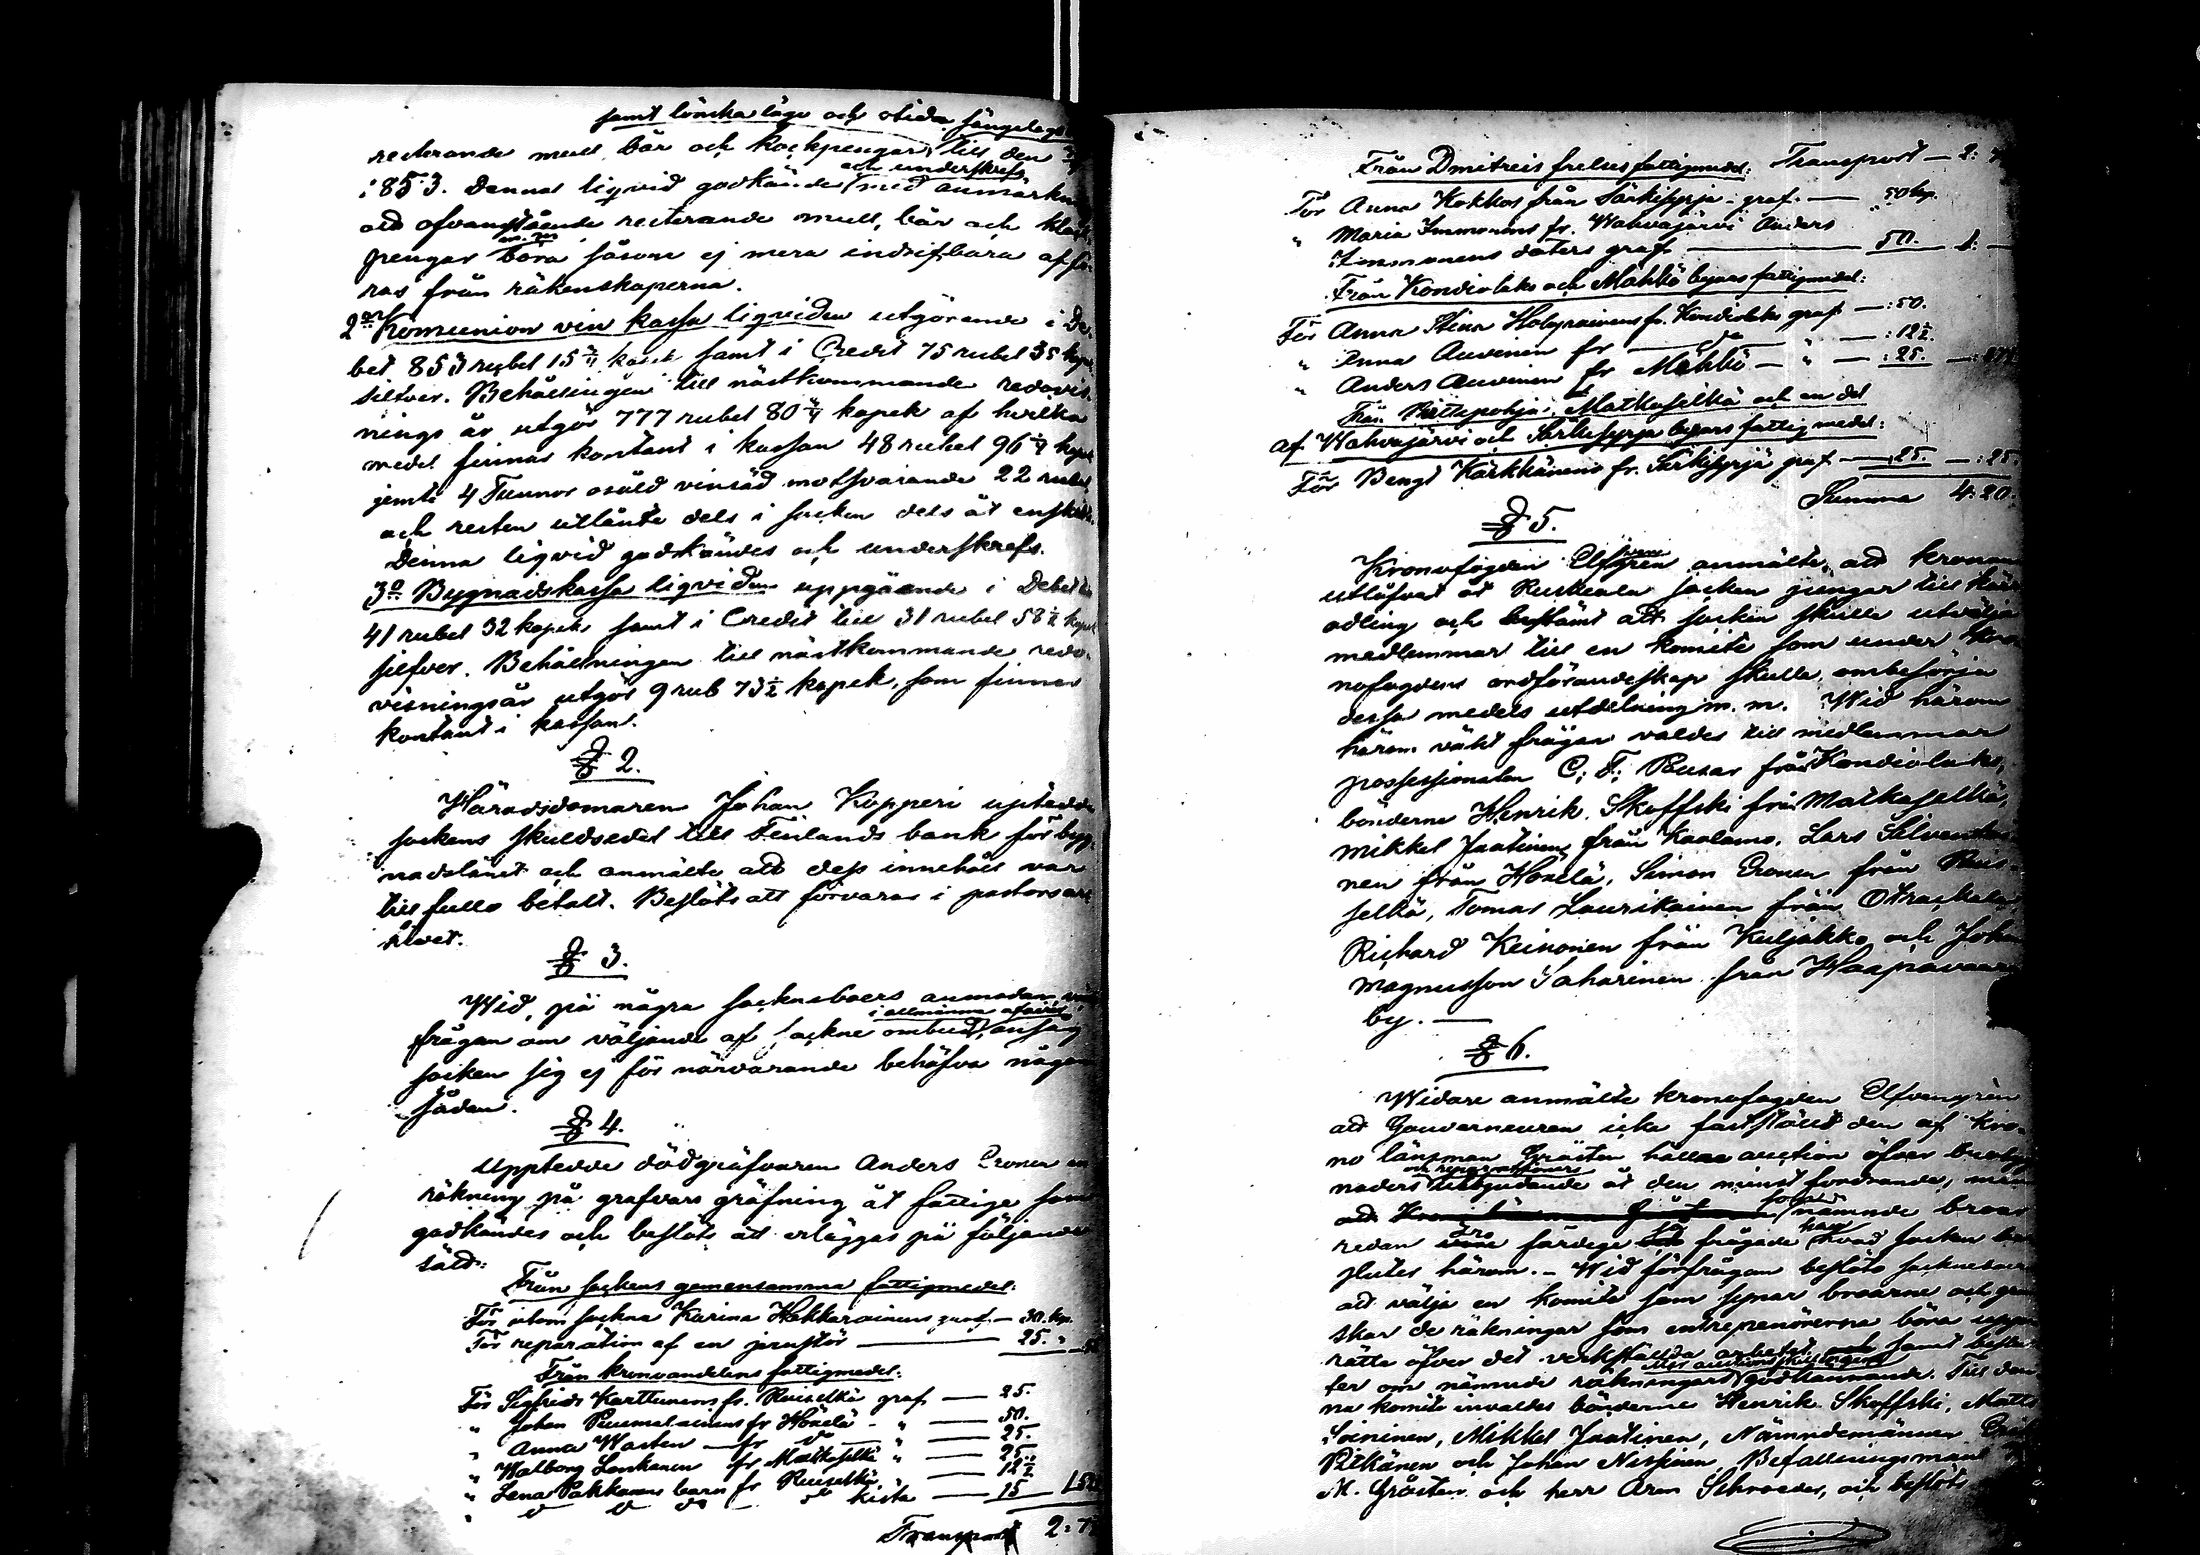 samt lönska läge och otida sängelag
resterande mull, bår och klockpengar till den
1853. Dennas liqvid godkändes med anmärkn
och underskrefs
att ofvanstående resterande mull, bår och klock
pengar böra såsom ej mera indrifbara affö-
ras från räkenskaperna.
2o Komunion vin kassa liqviden utgörande i De-
bet 853 rubel 15 kopek samt i Credit 75 rubel 35 kopek
silfver. Behållningen till nästkommande redovis-
nings år utgör 777 rubel 80 kopek af hvilka
medel finnas kontant i kassan 48 rubel 96 kopek
jemte 4 Tunnor osåld vinsäd motsvarande 22 rubel
och resten utlånte dels i socken dels åt enskilde.
Denna liqvid godkändes och underskrefs.
3o Bygnadskassa liqviden uppgående i Debet till
41 rubel 32 kopek samt i Credit till 31 rubel 58 1/2 kopek
silfver. Behållningen till nästkommande redo-
visningsår utgör 9 rub 73 1/2 kopek, som finnas
kontant i kassan.
§ 2.
Häradsdomaren Johan Kopperi uptedde
sockens skuldsedel till Finlands bank för byg-
nadslånet och anmälte att dess innehåll var
till fullo betalt. Beslöts att förvaras i pastors ar-
kivet.
§ 3.
Wid, på några sockneboers anmodan, väckt
frågan om väljande af sockne ombud i allmänna afairer, ansåg
socken sig ej för närvarande behöfva någon
sådan.
§ 4.
Upptedde dödgräfvaren Anders Eronen en
räkning på grafvars gräfning åt fattige som
godkändes och beslöts att erläggas på följande
sätt:
Från sockens gemensamma fattigmedel:
För utom sockna Karina Hakkarainens graf — 30. kp.
För reparation af en jernstör — 25. "
Från kronoandelens fattigmedel:
För Sigfrids Karttunens fr. Ruiselkä graf — 25.
" Johan Puumalainens fr Hövelä " — 50.
" Anna Wasten — fr do " — 25.
" Walborg Lankanen fr Matkaselkä " — 25.
" Lena Pakkanens barn fr Ruiselkä " — 12 1/2
" do do do do kista — 15
Transport 2:7
Från Dmitreis frelses fattigmedel: Transport — 2:
För Anna Kokkos från Särkisyrja graf. — 50 kp.
" Maria Immonens fr. Wahvajärvi Anders
Immonens doters graf — 50. — 1: —
Från Kondiolaks och Mähkö byars fattigmedel:
För Anna Stina Holopainens fr. Kondiolaks graf — :50.
" Anna Auvinen fr — do — " — :12 1/2.
" Anders Auvinen fr Mähkö — " — :25.
Från Pirttipohja, Matkaselkä och en del
af Wahvajärvi och Särkisyrja byars fattigmedel:
För Bengt Kärkkäinens fr. Särkisyrjä graf — :25. — :25.
Summa 4:20.
§ 5.
Kronofogden Elfvengren anmälte, att kronan
utlåfvat åt Ruskeala socken pengar till
odling och bestämt att socken skulle utvälja
medlemmar till en komité som under Kro-
nofogdens ordförandeskap skulle ombesörja
dessa medels utdelning m. m. Wid härom
härom väkt frågan valdes till medlemmar
possessionaten C: F: Pusar från Kondiolaks,
bönderne Henrik Skoffski från Matkaselkä,
Mikkel Jaatinen från Kaalamo, Lars Silventoi-
nen från Hovelä, Simon Eronen från Ruis-
selkä, Tomas Laurikainen från Otrackala
Richard Keinonen från Kuljakko och Johan
Magnusson Saharinen från Haapavaara
by. —
§ 6.
Widare anmälte kronofogden Elfvengrén
att Gouverneuren icke fastställt den af Kro-
no länsman Gråsten hållna auction öfver brobyg-
naders och reparationers utbjudande åt den minst fordrande, men
att nämnde broar
redan äro färdige så frågade han hvad socken be-
slutes härom. — Wid förfrågan beslöts sockneboer
att välja en komité som synar broarne och gran-
skar de räkningar som entreprenörerna böra upp-
rätta öfver det verkställda arbetet samt beslu-
ter om nämnde räkningars eller auctions skillingens godkännande. Till den-
na komité invaldes bönderne Henrik Skoffski, Matts
Soininen, Mikkel Jaatinen, Nämndemännen
Pitkänen och Johan Nissinen, Befallningsman
M. Gråsten och herr Aron Schroeder, och beslöts